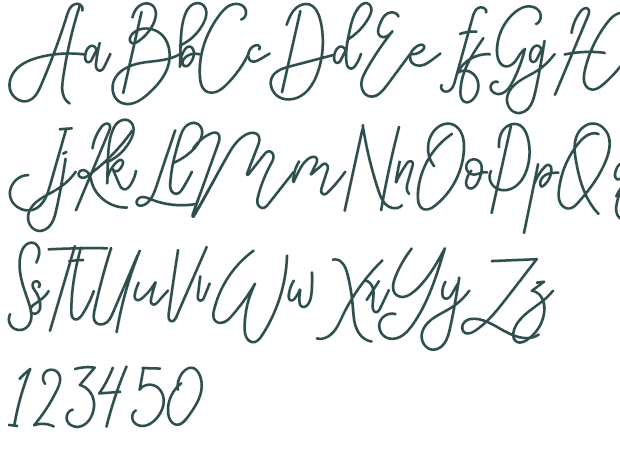 AaBbCcDdEe FfGgH
JjKkLlMmNnOoPpQ
SsTtUuVvWwXxYyZz
123450